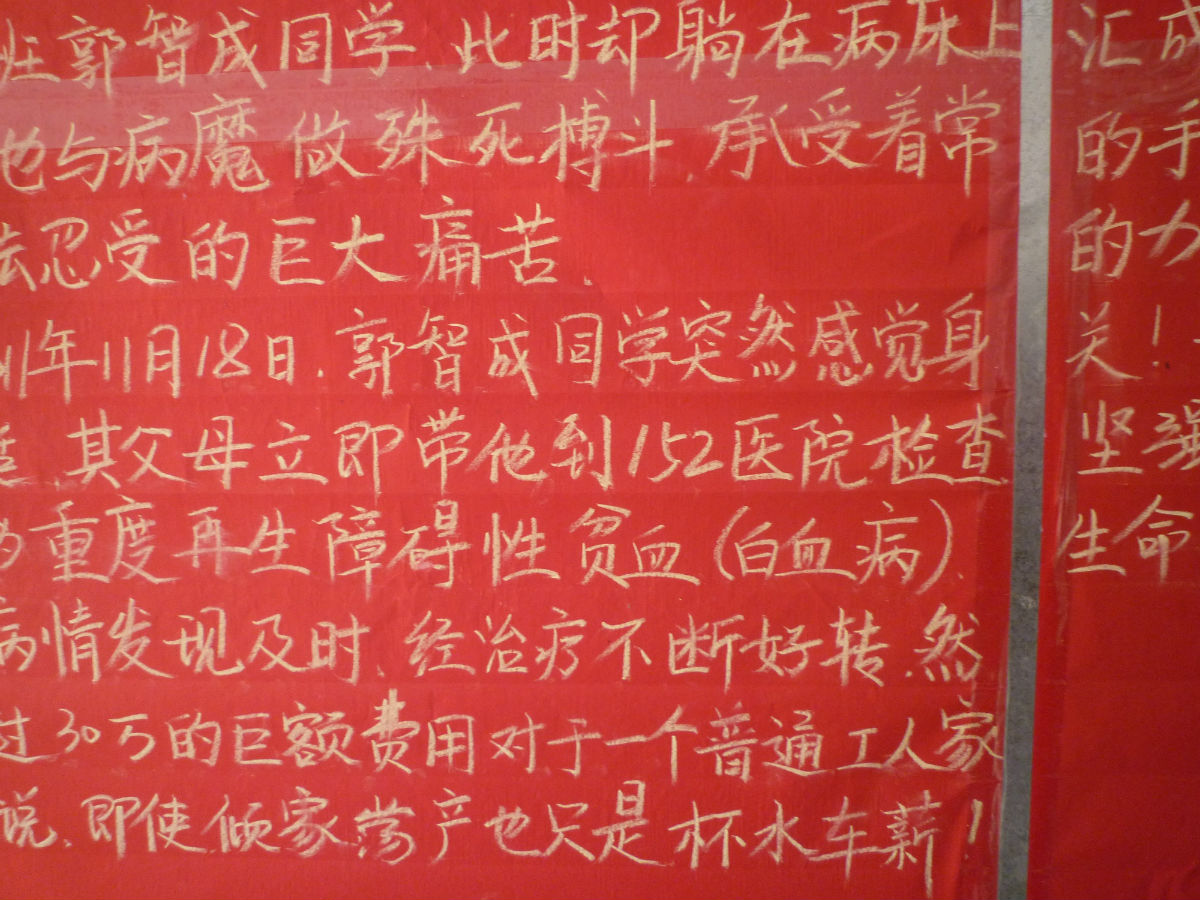 班郭智成同学.此时却躺在病床上
他与病魔做殊死搏斗.承受着常
法忍受的巨大痛苦.
11年11月18日.郭智成同学突然感觉身
其父母立即带他到152医院检查
为重度再生障碍性贫血(白血病).
病情发现及时.经治疗不断好转.然
过30万的巨额费用对于一个普通工人家
说.即使倾家荡产也只是杯水车薪!
汇成
的手
的力
关!
坚强
生命